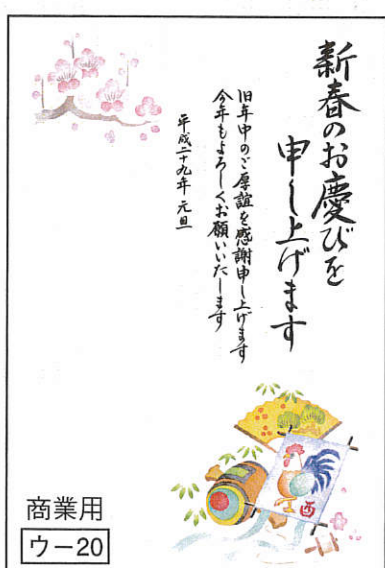 新春のお慶びを
申し上げます
旧年中のご厚誼を感謝申し上げます
今年もよろしくお願いいたします
平成二十九年 元旦
酉
商業用
ウー20